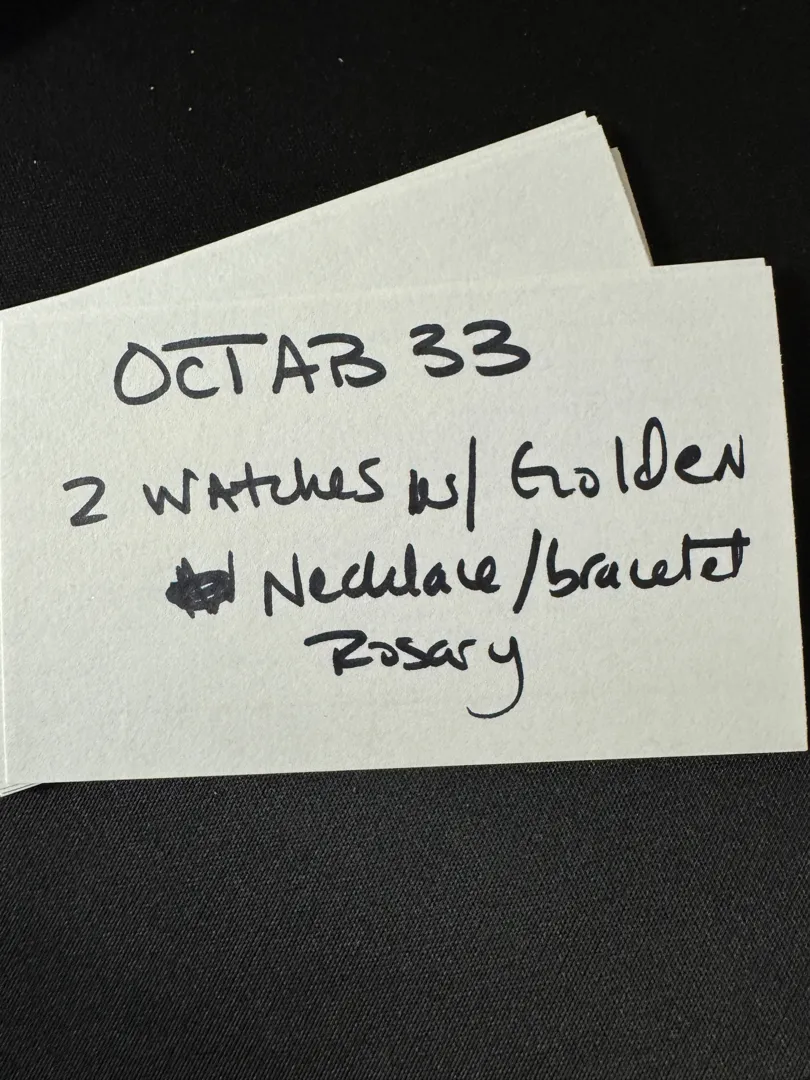 OCTAB 33
2 Watches w/ Golden
Necklace/bracelet
Rosary